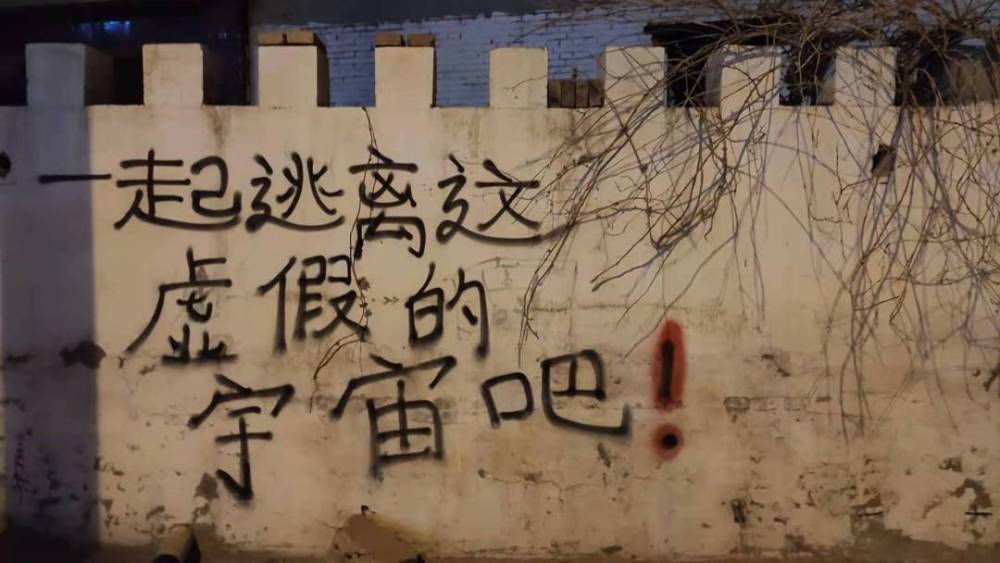 一起逃离这
虚假的
宇宙吧!